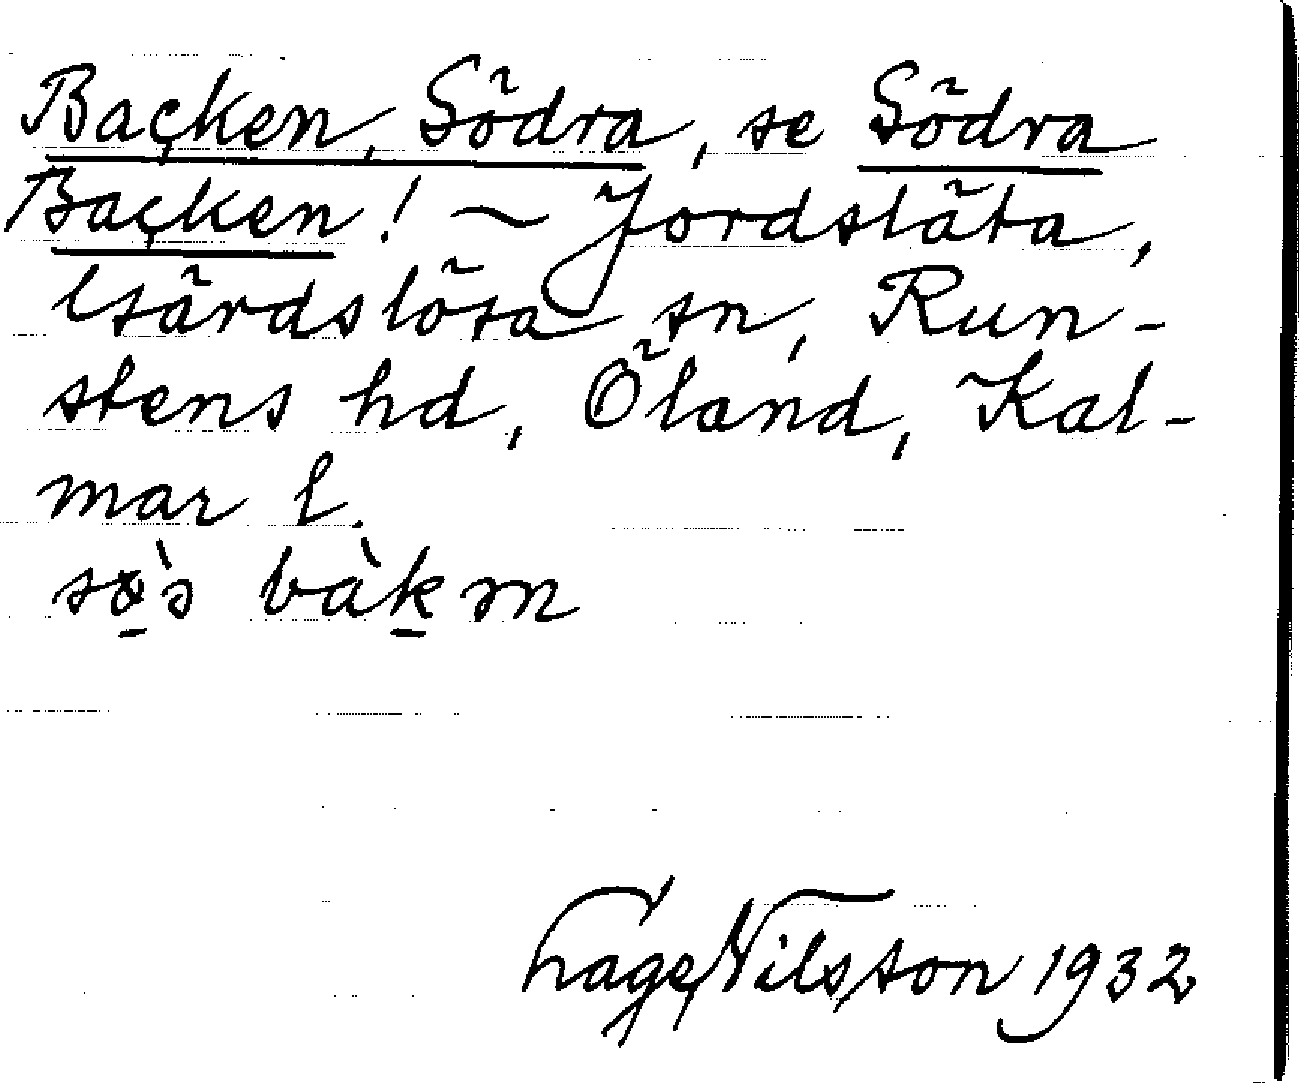 Backen, Södra, se Södra
Backen! ~ Jordsläta,
Gärdslösa sn, Run-
stens hd, Öland, Kal-
mar l.
bàk
Nilsson 1932